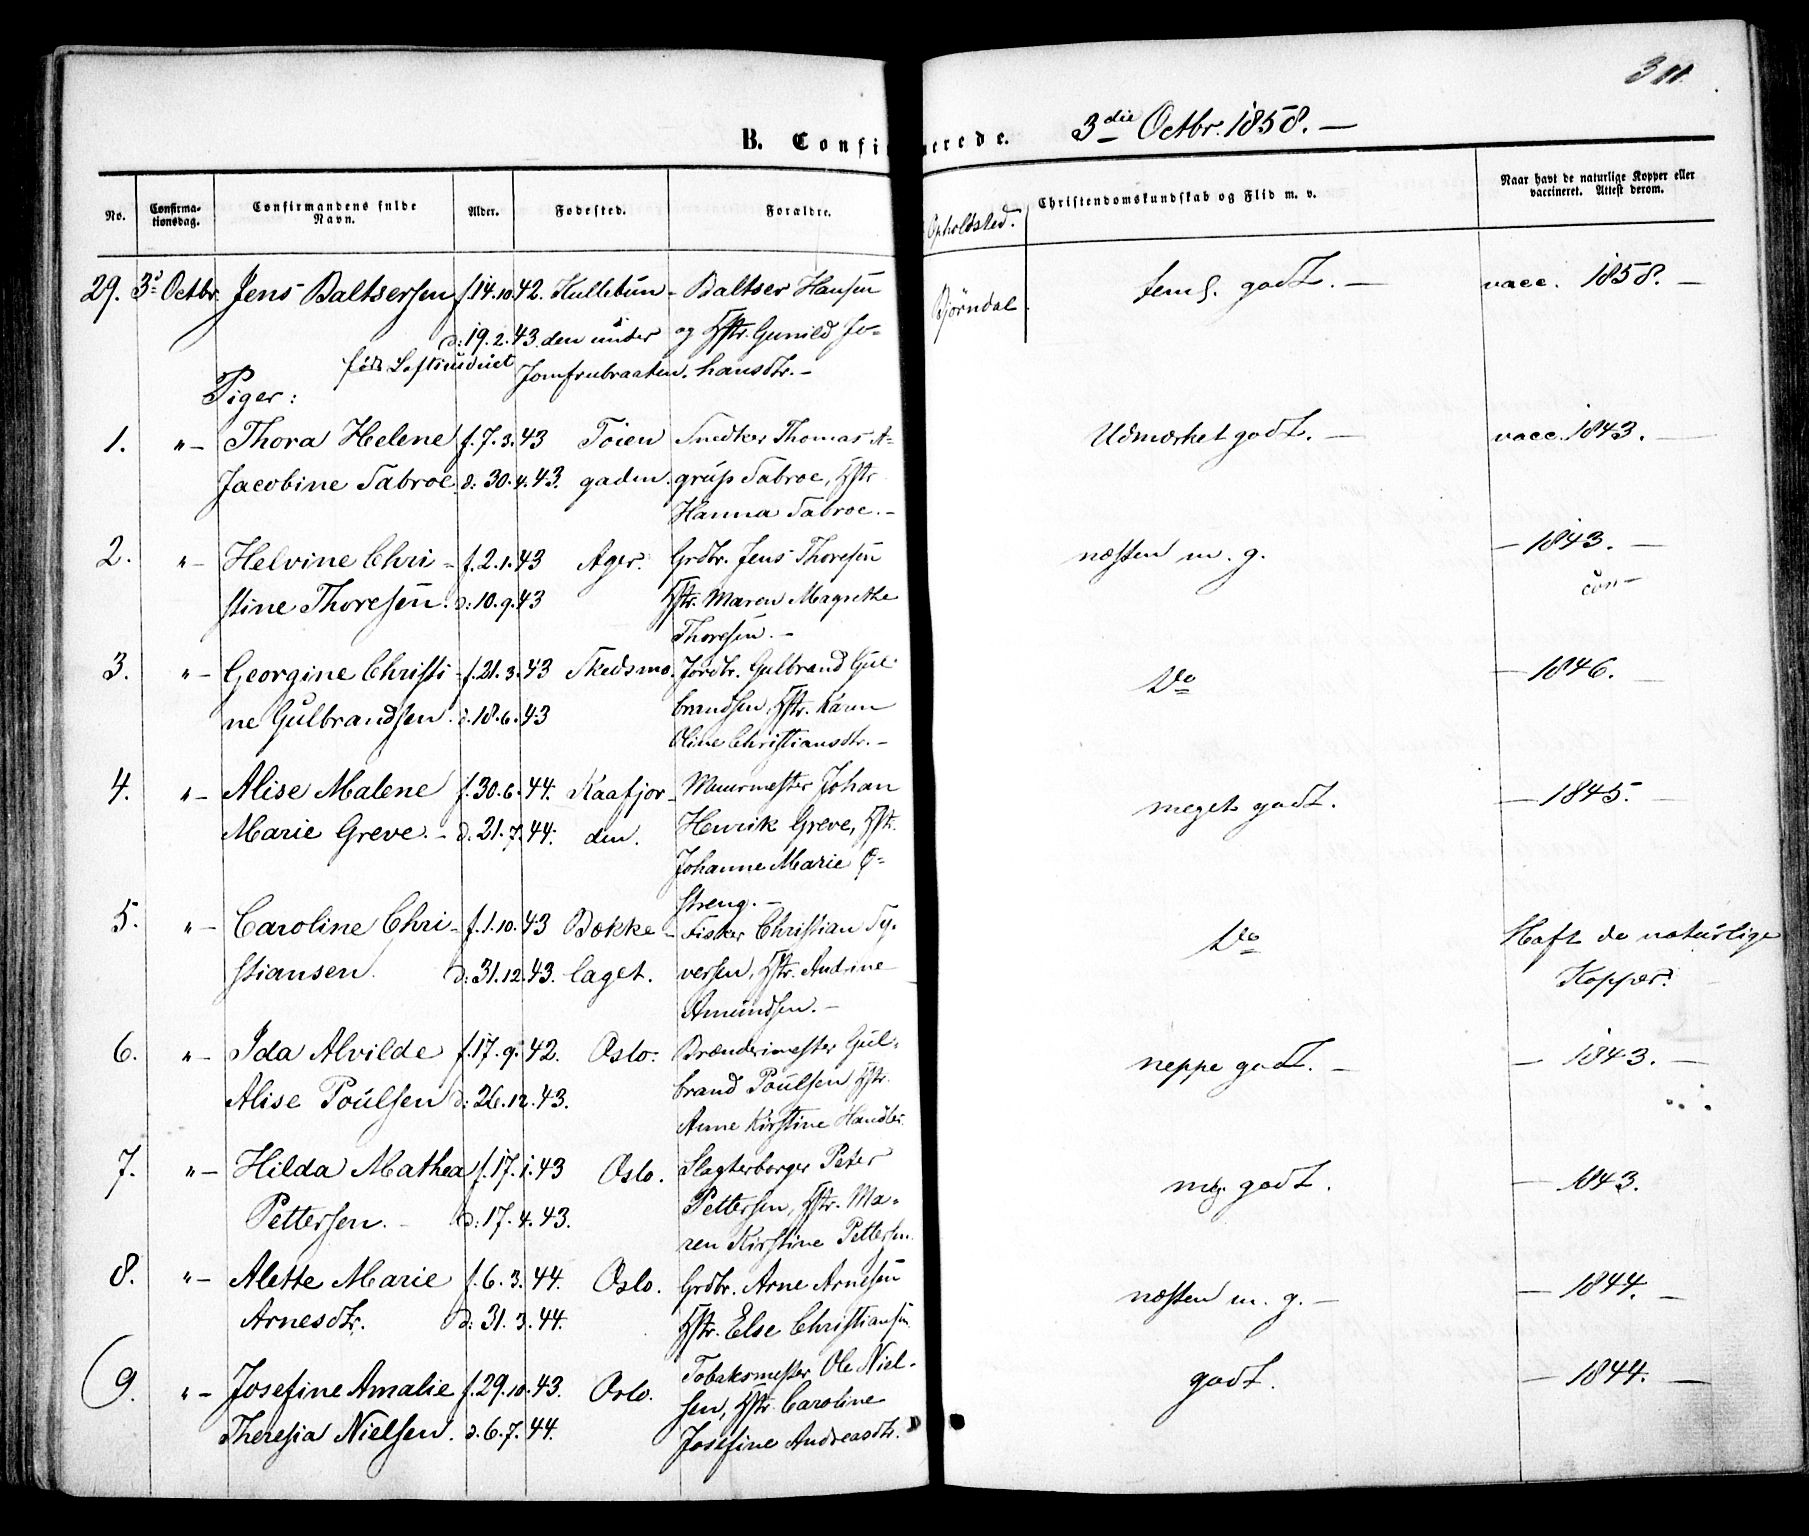 311.
B. Confirmerede. 3die Octbr. 1858. —
No. Confirma-tionsdag. Confirmandens fulde Navn. Alder. Fødested. Forældre. Opholdsted. Christendomskundskab og Flid m. v. Naar havt de naturlige Kopper eller vaccineret. Attest derom.
29. 3d Octbr. Jens Baltsersen f. 14.10.42. Hullebun- Baltser Hansen Bjørndal. temd. godt. — vacc. 1858. —
d: 19.2.43. den under og Hstr. Gunild Jo-
Jomfrubraaten. hansdtr. —
Piger:
1. "— Thora Helene f. 7.3.43 Tøien Snedker Thomas A- Udmærket godt. — vacc. 1843. —
Jacobine Tabroe. d: 30.4.43. gaden. grup Tabroe, Hstr.
Hanna Tabroe. —
2. "— Helvine Chri- f. 2.1.43 Ager. Grdbr. Jens Thoresen næsten m. g. — 1843. —
stine Thoresen. d: 10.9.43 Hstr. Maren Magrethe con—
Thoresen. —
3. "— Georgine Christi- f. 21.3.43 Skedsmo. Jordbr. Gulbrand Gul- Do — 1846. —
ne Gulbrandsen. d. 18.6.43 brandsen, Hstr. Karen
Oline Christiansdtr. —
4. "— Alise Malene f. 30.6.44. Kaafjor- Muurmester Johan meget godt. — 1845. —
Marie Greve. — d. 21.7.44. den. Henrik Greve, Hstr.
Johanne Marie Ø-
streng. —
5. "— Caroline Chri- f. 1.10.43 Bække- Fisker Christian Sy- Do Haft de naturlige
stiansen. d: 31.12.43. laget. versen, Hstr. Andrine Kopper.
Amundsen. —
6. "— Ida Alvilde f. 17.9.42. Oslo. Brænderimester Gul- neppe godt. — — 1843. —
Alise Poulsen d: 26.12.43. brand Poulsen Hstr.
Anne Kirstine
7. "— Hilda Mathea f. 17.1.43 Oslo. Slagterborger Peter meg. godt. — 1843.
Pettersen. — d: 17.4.43. Pettersen, Hstr. Ma-
ren Kirstine Pettersen
8. "— Alette Marie f. 6.3.44. Oslo. Grdbr. Arne Arnesen næsten m. g. — — 1844. —
Arnesdtr. d: 31.3.44. Hstr. Else Christiansen
9. "— Josefine Amalie f. 29.10.43. Oslo. Tobaksmester Ole Niel- godt. — 1844. —
Theresia Nielsen. d. 6.7.44. sen, Hstr. Caroline
Josefine Andreasdtr.